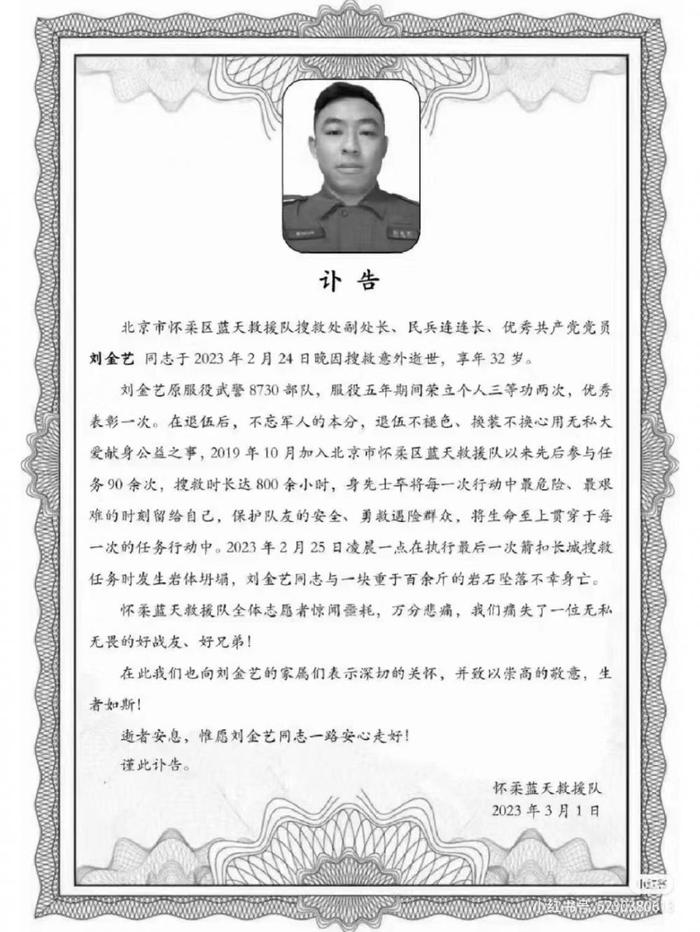 讣 告
北京市怀柔区蓝天救援队搜救处副处长、民兵连连长、优秀共产党党员
刘金艺 同志于 2023 年 2 月 24 日晚因搜救意外逝世，享年 32 岁。
刘金艺原服役武警 8730 部队，服役五年期间荣立个人三等功两次，优秀
表彰一次。在退伍后，不忘军人的本分，退伍不褪色、换装不换心用无私大
爱献身公益之事，2019 年 10 月加入北京市怀柔区蓝天救援队以来先后参与任
务 90 余次，搜救时长达 800 余小时，身先士卒将每一次行动中最危险、最艰
难的时刻留给自己，保护队友的安全、勇救遇险群众，将生命至上贯穿于每
一次的任务行动中。2023 年 2 月 25 日凌晨一点在执行最后一次箭扣长城搜救
任务时发生岩体坍塌，刘金艺同志与一块重于百余斤的岩石坠落不幸身亡。
怀柔蓝天救援队全体志愿者惊闻噩耗，万分悲痛，我们痛失了一位无私
无畏的好战友、好兄弟！
在此我们也向刘金艺的家属们表示深切的关怀，并致以崇高的敬意，生
者如斯！
逝者安息，惟愿刘金艺同志一路安心走好！
谨此讣告。
怀柔蓝天救援队
2023 年 3 月 1 日
小红书号: